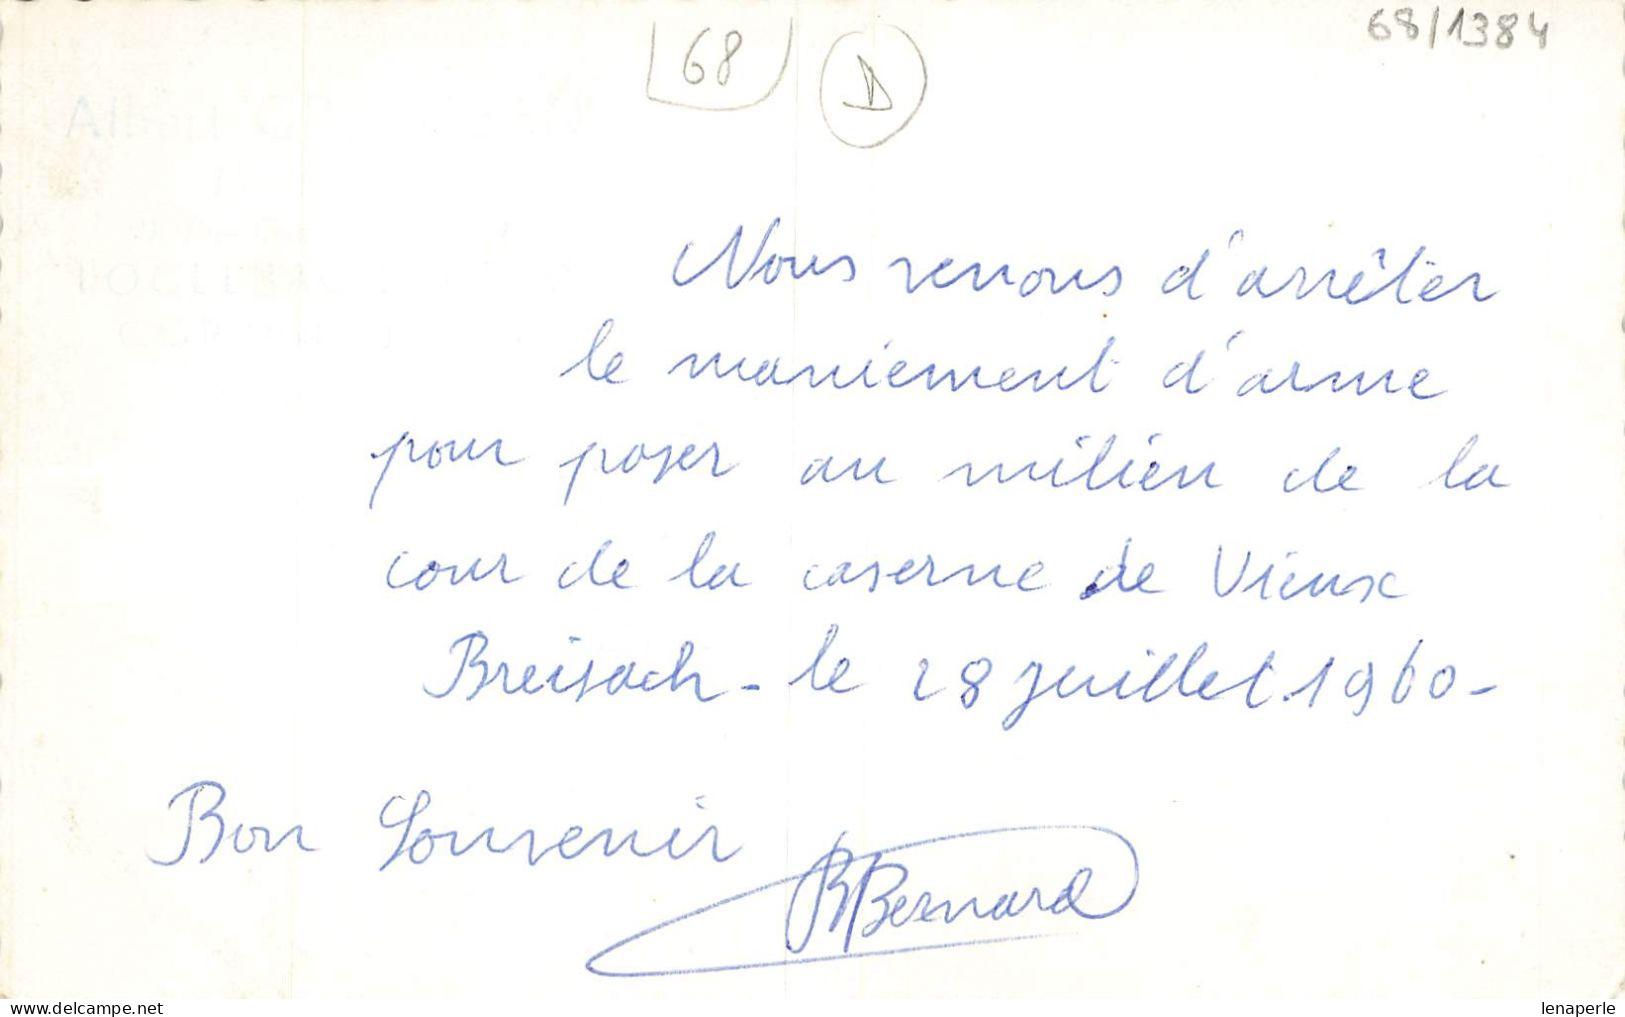 68
D
68/1384
Nous venons d'arrêter
le maniement d'arme
pour poser au milieu de la
cour de la caserne de Vieux
Breisach - le 28 juillet 1960 -
Bon Souvenir
BBernard
delcampe.net
lenaperle